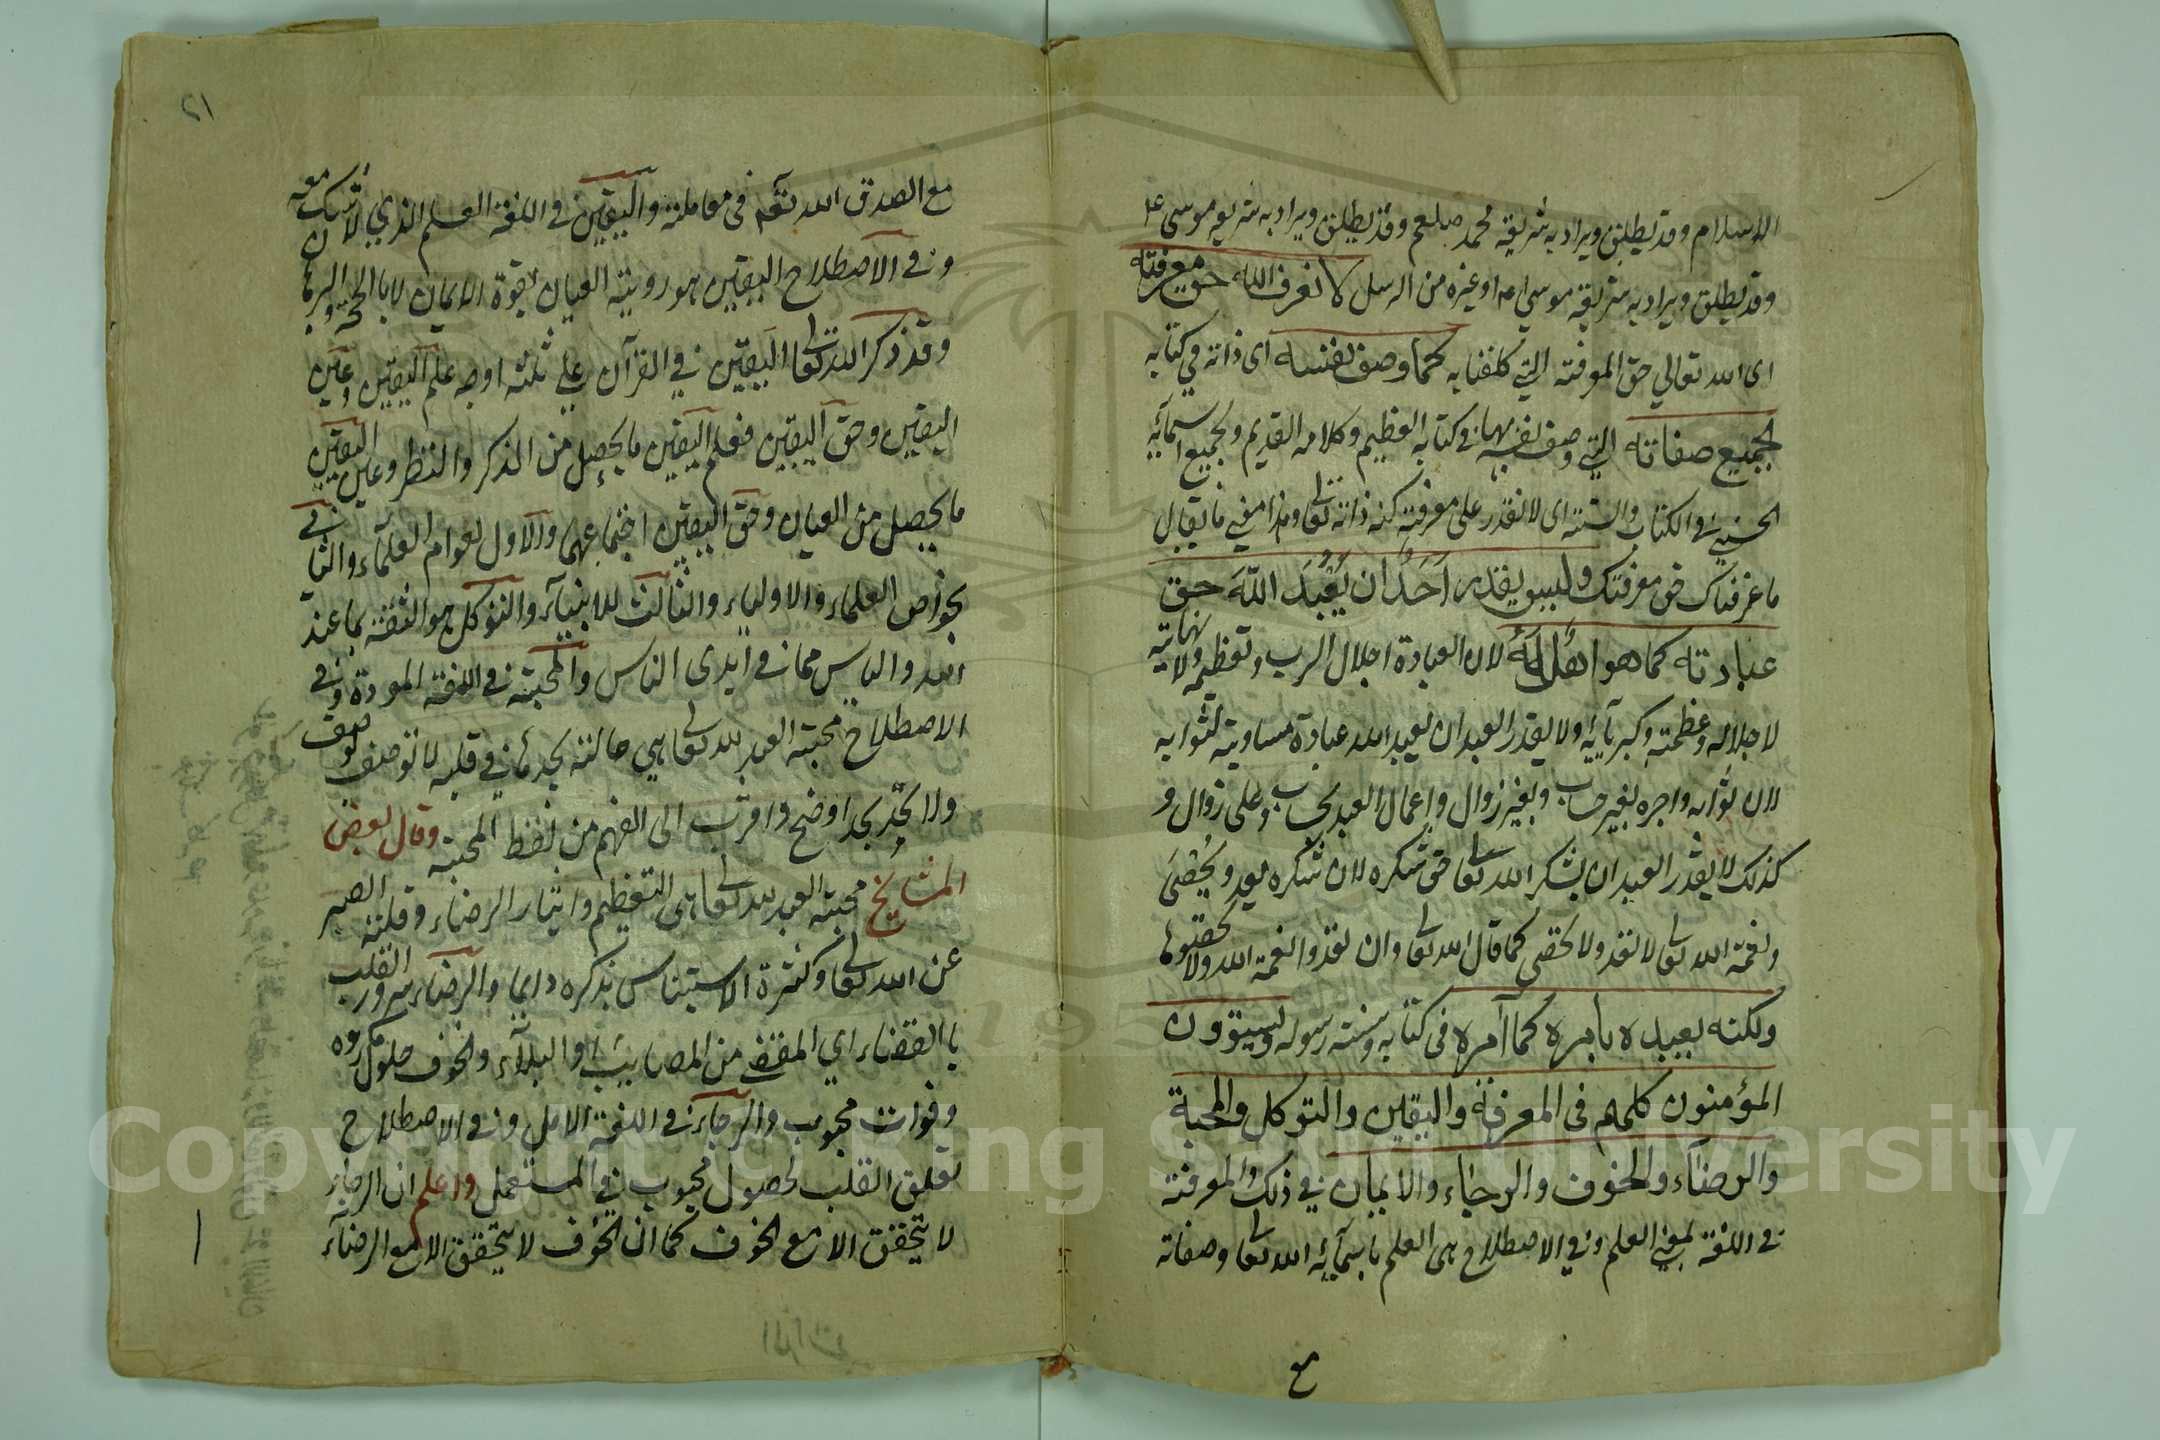 الاسلام وقد يطلق ويراد به شريعة محمد صلعم وقد يطلق ويراد به شريعة موسى ع
وقد يطلق ويراد به شريعة موسى ع او غيره من الرسل لا نعرف الله حق معرفته
اى الله تعالي حق المعرفته التي كلفنا به كما وصف نفسه اى ذاته في كتابه
بجميع صفاته التي وصف نفسه بها في كتابه العظيم وكلامه القديم وبجميع اسمآئه
الحسني في الكتاب والسنته اى لا نقدر على معرفته كنه ذاته تعا وهذا معني ما يقال
ما عرفناك حق معرفتك وليس يقدر اَحَدٌ ان يَعْبُدَ اللّهَ حق
عبادته كما هو اهْلٌ لَهُ لان العبادة اجلال الرب وتعظيمه ولا نهاية
لاجلاله وعظمته وكبريآئه ولا يقدر العبد ان يعبد الله عبادة مساوية لثوابه
لان ثوابه واجره بغير حساب وبغير زوال واعمال العبد بحساب وعلى زوال و
كذلك لا يقدر العبد ان يشكر الله تعا حق شكره لان شكره يعد ويُحْصَى
ونعمة الله تعا لا تعد ولا تحصى كما قال الله تعا وان تعدوا نعمة الله لا تحصوها
ولكنه يعبده بامره كما آمره في كتابه وسنته رسوله ويستوون
المؤمنون كلهم فى المعرفة واليقين والتوكل والمحبة
والرضآء والخوف والرجاء والايمان في ذلك والمعرفته
في اللغة بمعني العلم وفي الاصطلاح هى العلم باسمآئه الله تعا وصفاته
مع
٢١
مع الصدق الله تعم فى معاملته واليقين في اللغة العلم الذي لا شك معه
وفي الاصطلاح اليقين هو روية العيان بقوة الايمان لا بالحجة والبرهان
وقد ذكر الله تعا اليقين في القرآن علي ثلثه اوجه علم اليقين وعين
اليقين وحق اليقين فعلم اليقين ما يحصل من الذكر والنظر وعين اليقين
ما يحصل من العيان وحق اليقين اجتماعهما والاول لعوام العلمآء والثاني
لخواص العلماء والاولياء والثالث للانبيآء والتوكل هو الثقة بما عند
الله والياس مما في ايدى الناس والمحبته في اللغة المودة وفي
الاصطلاح محبته العبد لله تعا هي حالته يجدها في قلبه لا توصف بوصف
ولا يحد بحد اوضح واقرب الى الفهم من لفظ المحبته وقال بعض
المشايخ محبته العبد لله تعا هى التعظيم وايثار الرضاء وقلة الصبر
عن الله تعا وكثرة الاستيناس بذكره دايما والرضاء سرور القلب
بالقضاء اي المقضى من المصايب والبلآء والخوف حلول مكروه
وفوات محبوب والرجآء في اللغة الامل وفي الاصطلاح
تعلق القلب لحصول محبوب في المستعمل واعلم ان الرجاء
لا يتحقق الا مع الخوف كما ان الخوف لا يتحقق الا مع الرضآء
Copyright © King Saud University